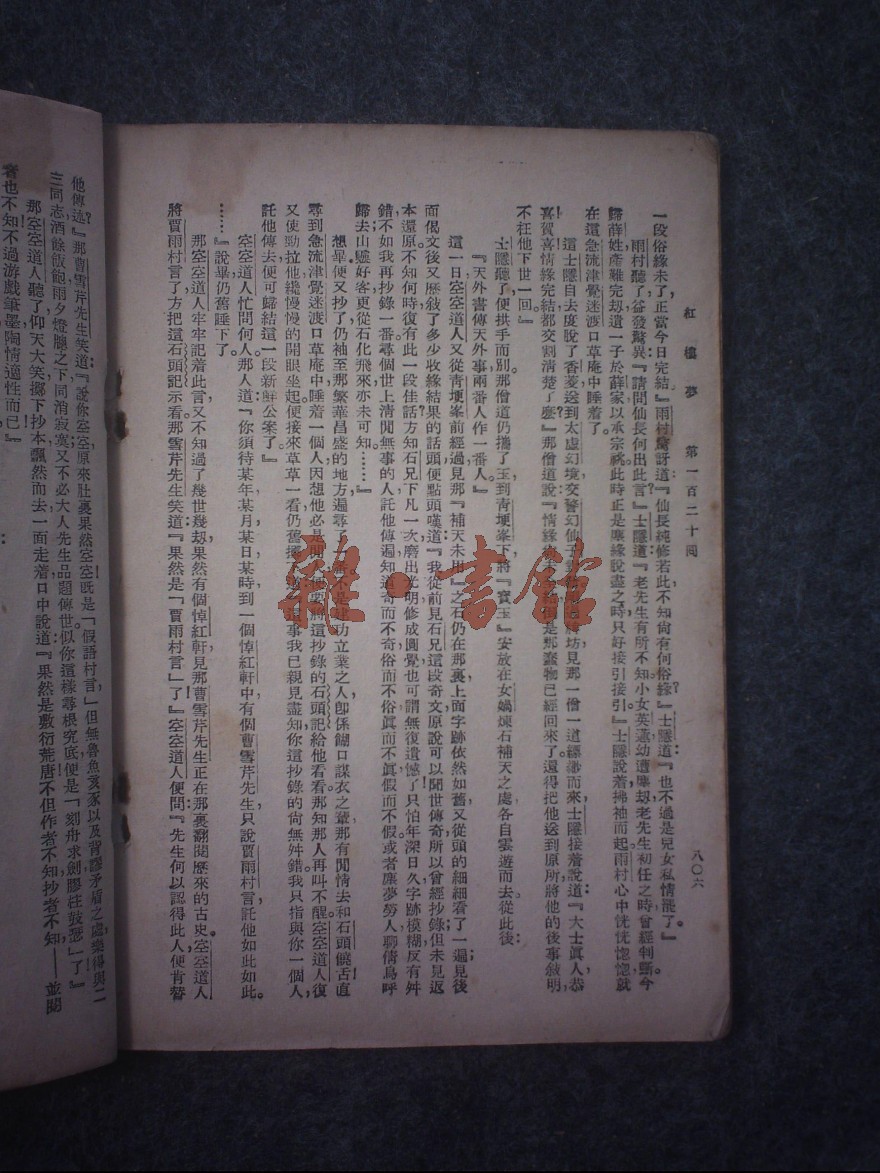 紅樓夢　第一百二十回
八〇六
一段俗緣未了，正當今日完結。』雨村驚訝道：『仙長純修若此，不知尙有何俗緣？』士隱道：『也不過是兒女私情罷了。』
雨村聽了，益發驚異：『請問仙長何出此言？』士隱道：『老先生有所不知：小女英蓮，幼遭塵刼，老先生初任之時，曾經判斷。今
歸薛姓，產難完刼，遺一子於薛家，以承宗祧。此時正是塵緣說盡之時，只好接引接引。』士隱說着，拂袖而起。雨村心中恍恍惚惚，就
在這急流津覺迷渡口草庵中睡着了。
這士隱自去度脫了香菱，送到太虛幻境，交警幻仙子
坊，見那一僧一道縹緲而來。士隱接着說道：『大士眞人，恭
喜！賀喜！情緣完結，都交割清楚了麽？』那僧道說：『情緣尙未
是那蠢物已經回來了。還得把他送到原所，將他的後事敍明，
不枉他下世一回。』
士隱聽了，便拱手而別。那僧道仍攜了玉到青埂峯下，將『寶玉』安放在女媧煉石補天之處，各自雲遊而去。從此後：
『天外書傳天外事，兩番人作一番人。』
這一日，空空道人又從青埂峯前經過，見那『補天未用』之石仍在那裏，上面字跡依然如舊，又從頭的細細看了一遍。見後
面偈文後又歷敍了多少收緣結果的話頭，便點頭嘆道：『我從前見石兄這段奇文，原說可以聞世傳奇，所以曾經抄錄，但未見返
本還原。不知何時，復有此一段佳話。方知石兄下凡一次，磨出光明，修成圓覺，也可謂無復遺憾了。只怕年深日久，字跡模糊，反有舛
錯，不如我再抄錄一番，尋個世上清閒無事的人，託他傳遍，知道奇而不奇，俗而不俗，眞而不眞，假而不假。或者塵夢勞人，聊倩鳥呼
歸去；山靈好客，更從石化飛來，亦未可知……』
想畢，便又抄了，仍袖至那繁華昌盛的地方，遍尋了一番，不是建功立業之人，卽係餬口謀衣之輩，那有閒情去和石頭饒舌？直
尋到急流津覺迷渡口草庵中，睡着一個人，因想他必是閒人，便要將這抄錄的石頭記給他看看。那知那人再叫不醒。空空道人復
又使勁拉他，纔慢慢的開眼坐起。便接來草草一看，仍舊擲
道：
這事我已親見盡知，你這抄錄的尙無舛錯。我只指與你一個人，
託他傳去，便可歸結這一段新鮮公案了。』
空空道人忙問何人，那人道：『你須待某年某月某日某時，到一個悼紅軒中，有個曹雪芹先生，只說賈雨村言，託他如此如此。
……』說畢，仍舊睡下了。
那空空道人牢牢記着此言，又不知過了幾世幾刼，果然有個悼紅軒，見那曹雪芹先生正在那裏翻閱歷來的古史。空空道人
將賈雨村言了，方把這石頭記示看。那雪芹先生笑道：『果然是「賈雨村言」了！』空空道人便問：『先生何以認得此人，便肯替
他傳述？』那曹雪芹先生笑道：『說你空空，原來肚裏果然空空！旣是「假語村言」，但無魯魚亥豕以及背謬矛盾之處，樂得與二
三同志，酒餘飯飽，雨夕燈牕之下，同消寂寞，又不必大人先生品題傳世。似你這樣尋根究底，便是「刻舟求劍，膠柱鼓瑟」了！』
那空空道人聽了，仰天大笑，擲下抄本，飄然而去。一面走着，口中說道：『果然是敷衍荒唐！不但作者不知，抄者不知，——並閱
者也不知。不過游戲筆墨，陶情適性而已！』
雅·書館